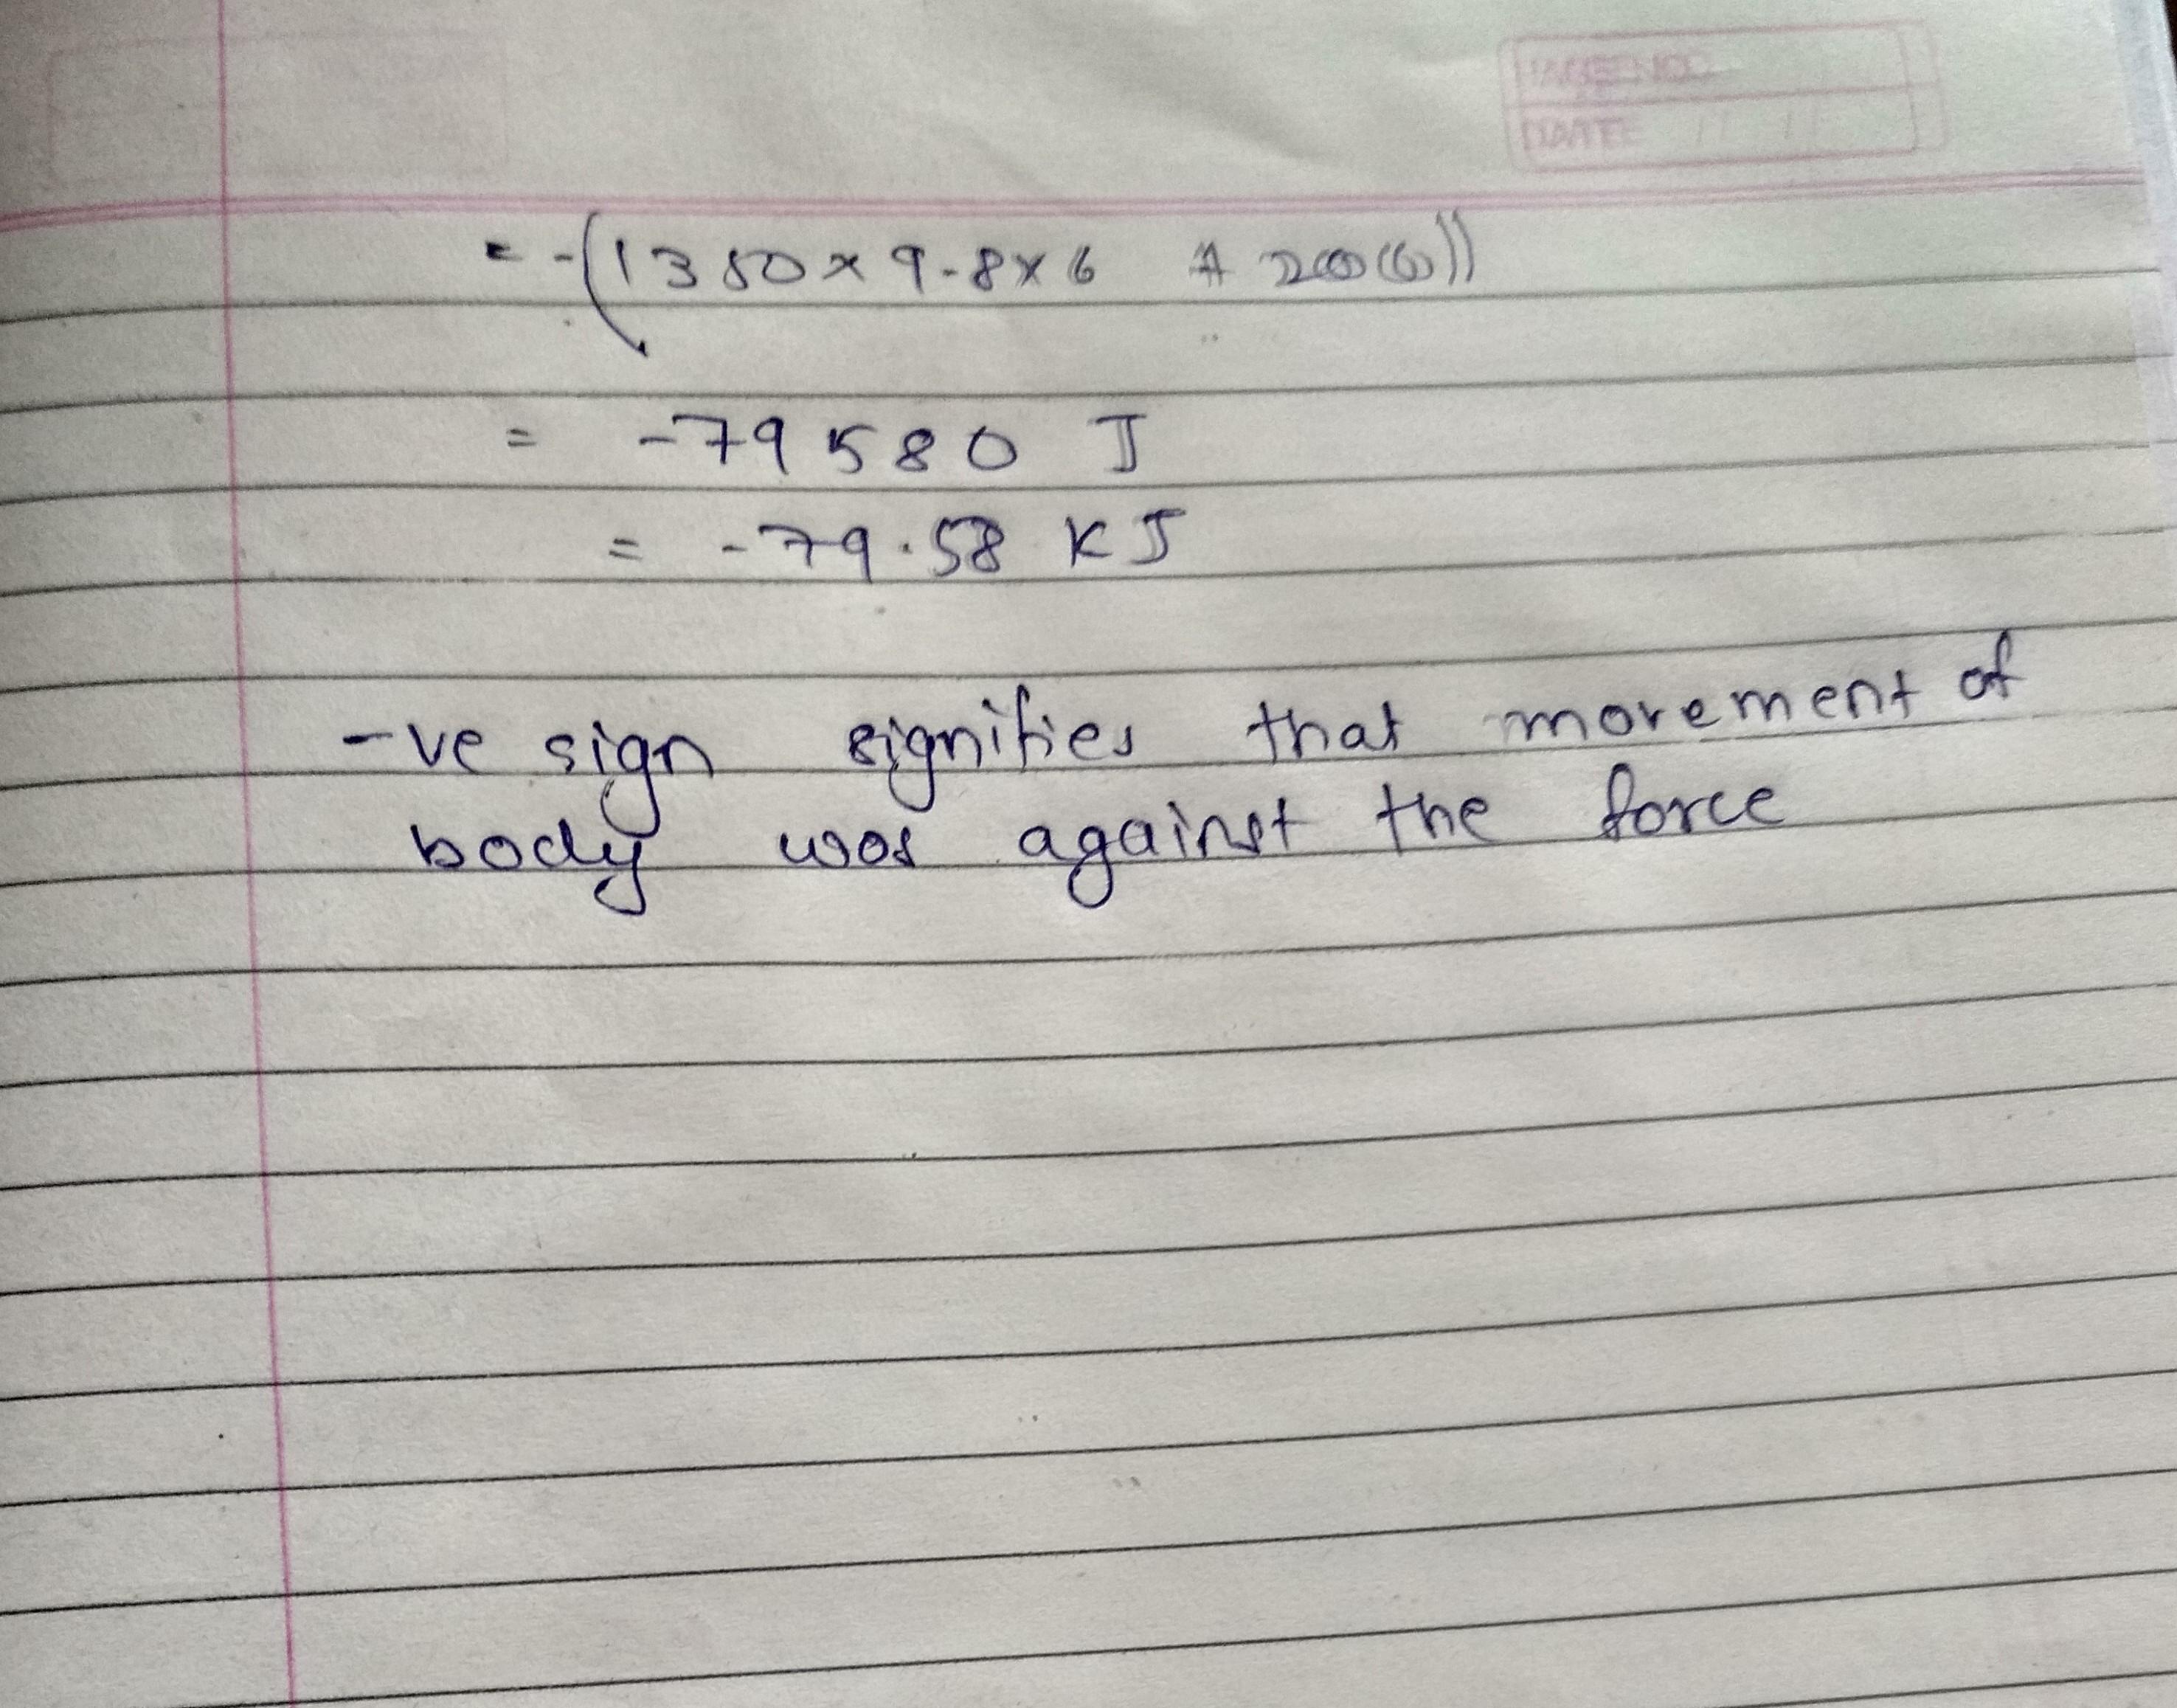 PAGE NO
DATE / /
= -(1350 x 9.8 x 6 + 200(6))
= -79580 J
= -79.58 KJ
-ve sign signifies that movement of
body was against the force